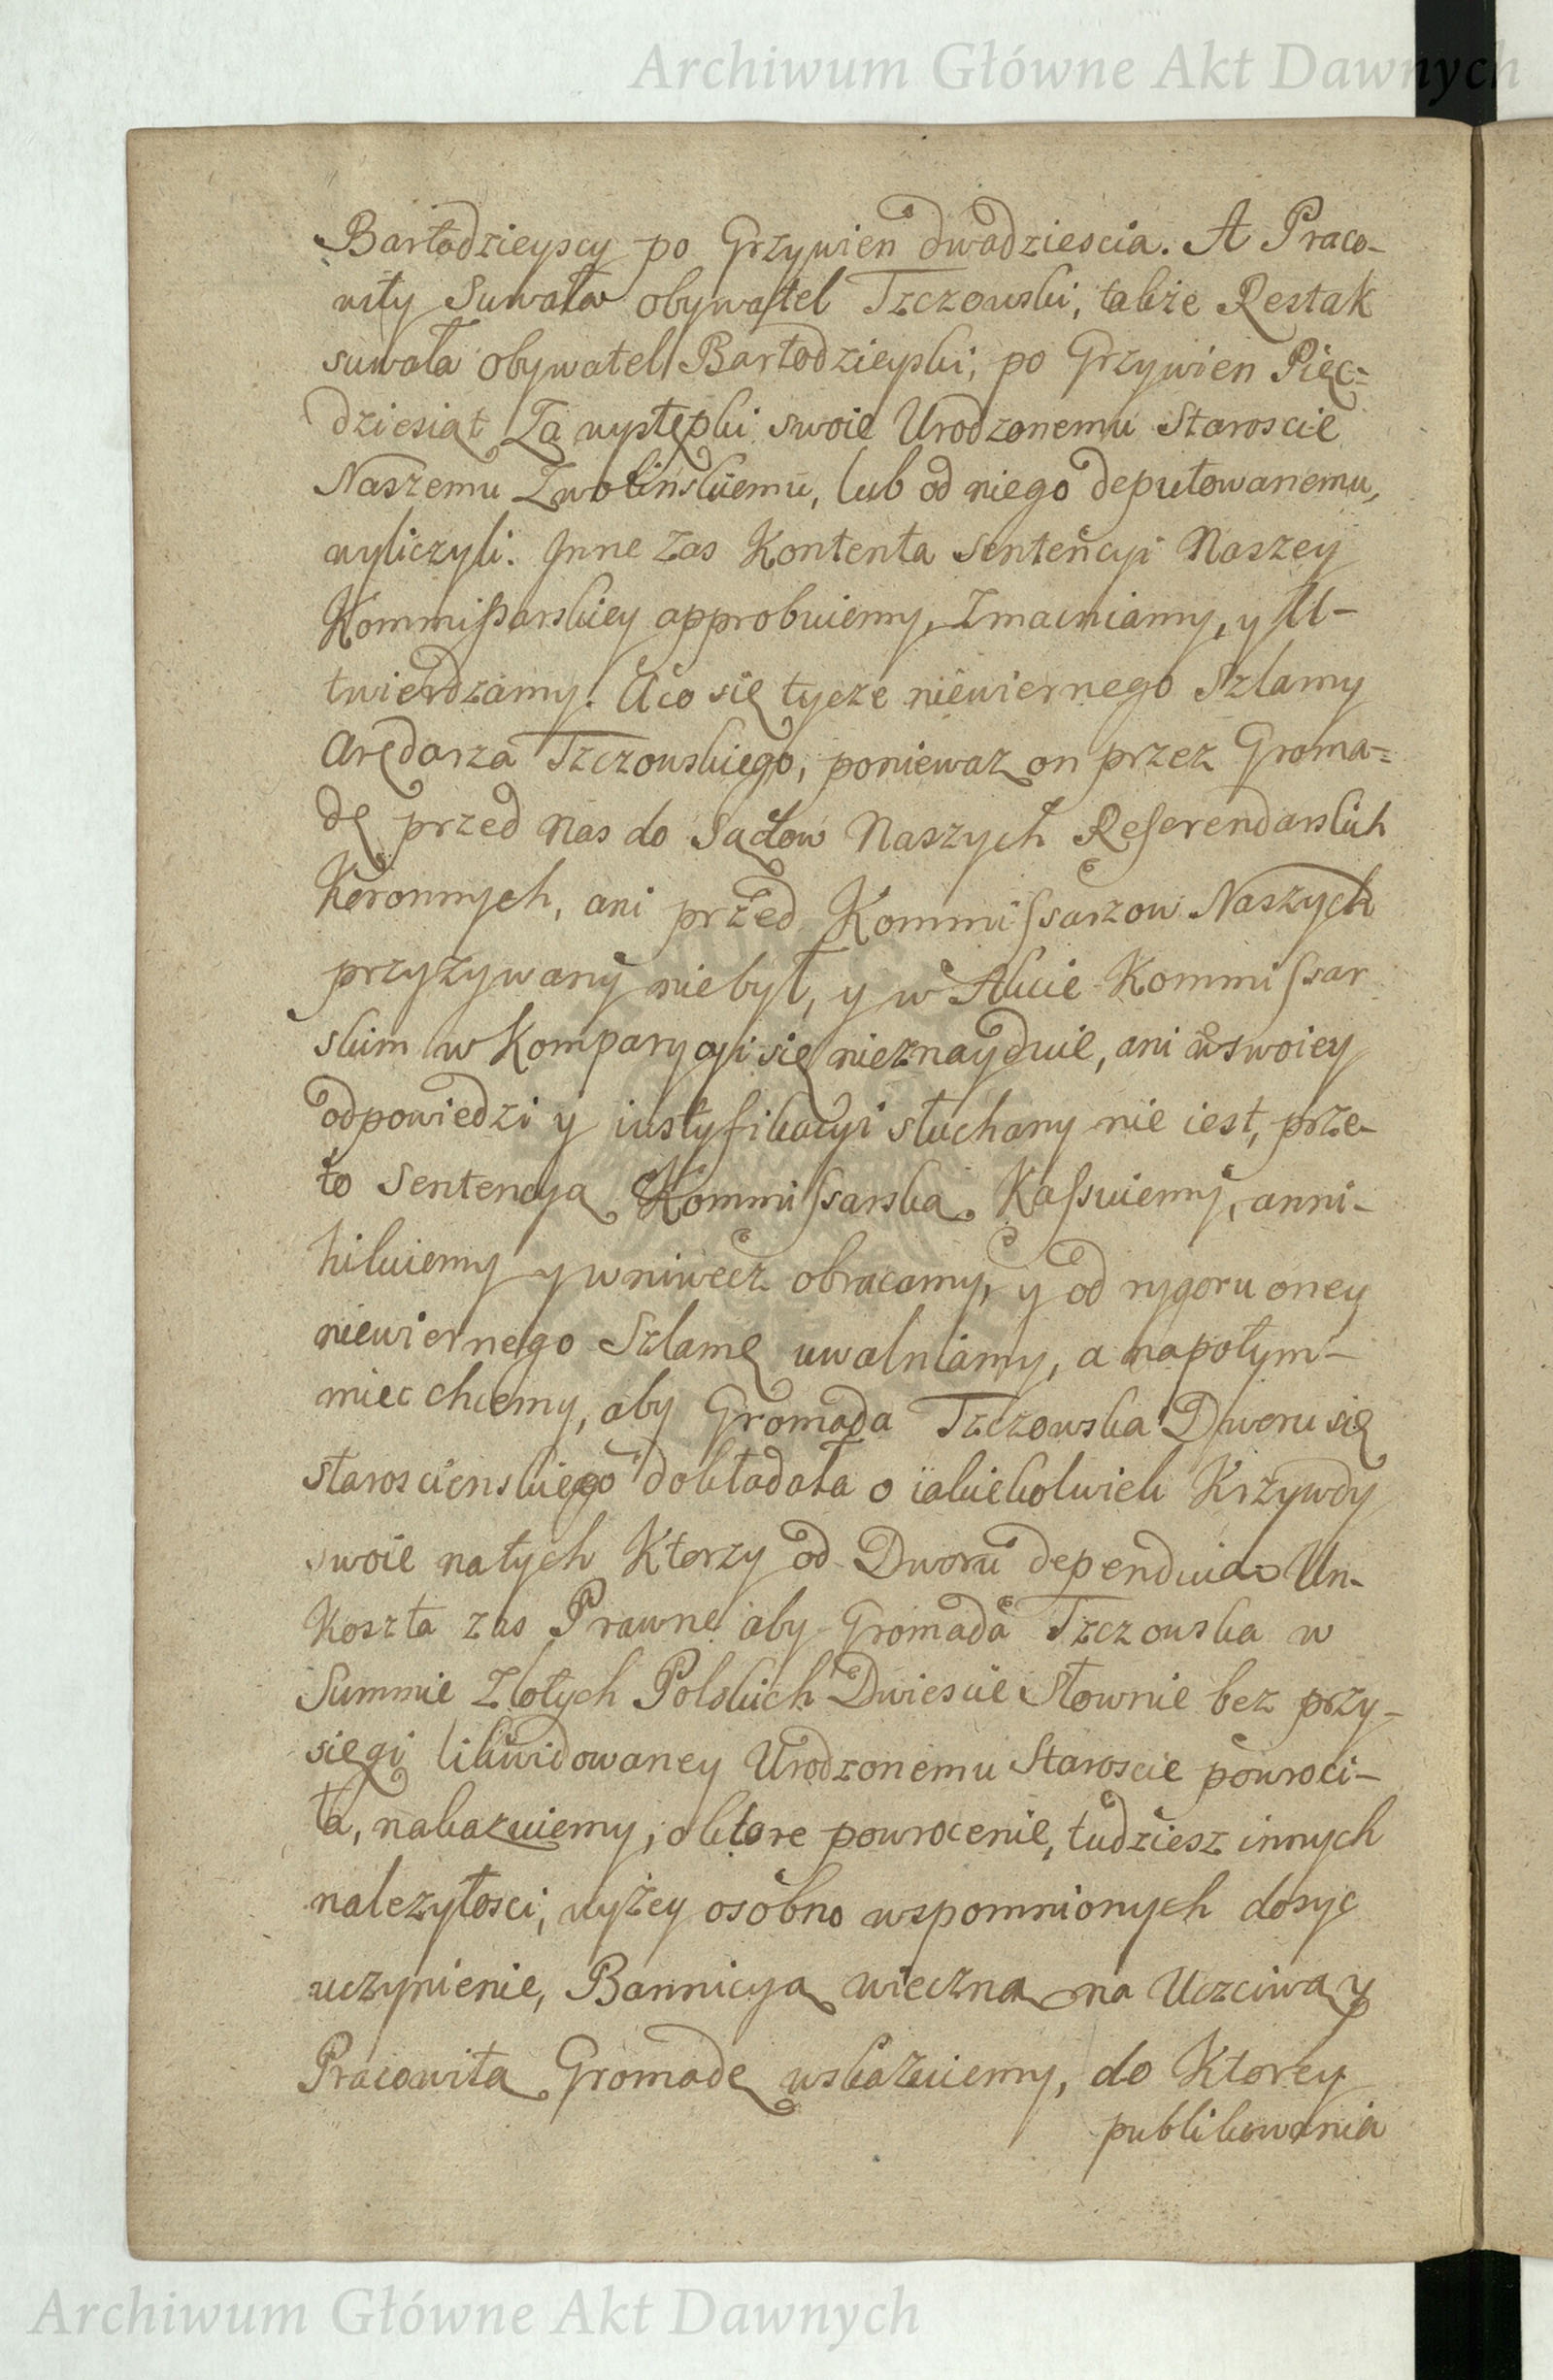 Archiwum Główne Akt Dawnych
Bartodzieyscy po Grzywien dwadziescia. A Praco-
wity Suwała obywatel Tzczowski, także Restak
suwała obywatel Bartodzieyski, po Grzywien Pięc=
dziesiąt Za występki swoie Urodzonemu Staroscie
Naszemu Zwolinskiemu, lub od niego deputowanemu,
wyliczyli. Inne zas Kontenta Sentencyi Naszey
Kommissarskiey approbuiemy, Zmacniamy, y U-
twierdzamy. A co się tycze niewiernego Szlamy
Arędarza Tzczowskiego, poniewaz on przez Groma=
dę przed Nas do Sądow Naszych Referendarskich
Koronnych, ani przed Kommissarzow Naszych
przyzywany niebył, y w Akcie Kommissar
skim w Komparycyi się nieznayduie, ani w swoiey
odpowiedzi y iustyfikacyi słuchany nie iest, prze-
to Sentencyą Kommissarską Kassuiemy, anni-
hiluiemy y wniwecz obracamy, y od rygoru oney
niewiernego Szlamę uwalniamy, a napotym-
miec chcemy, aby Gromada Tzczowska Dworu się
staroscienskiego dokładała o iakiekolwiek Krzywdy
swoie natych Ktorzy od Dworu dependuią Un-
koszta zas Prawne aby Gromada Tzczowska w
Summie Złotych Polskich Dwiescie Słownie bez przy-
sięgi likwidowaney Urodzonemu Staroscie powroci-
ła, nakazuiemy, o ktore powrocenie, tudziesz innych
nalezytosci, wyżey osobno wspomnionych dosyc
uczynienie, Bannicyą wieczną na Uczciwą y
Pracowitą Gromadę wskazuiemy, do Ktorey
publikowania
Archiwum Główne Akt Dawnych